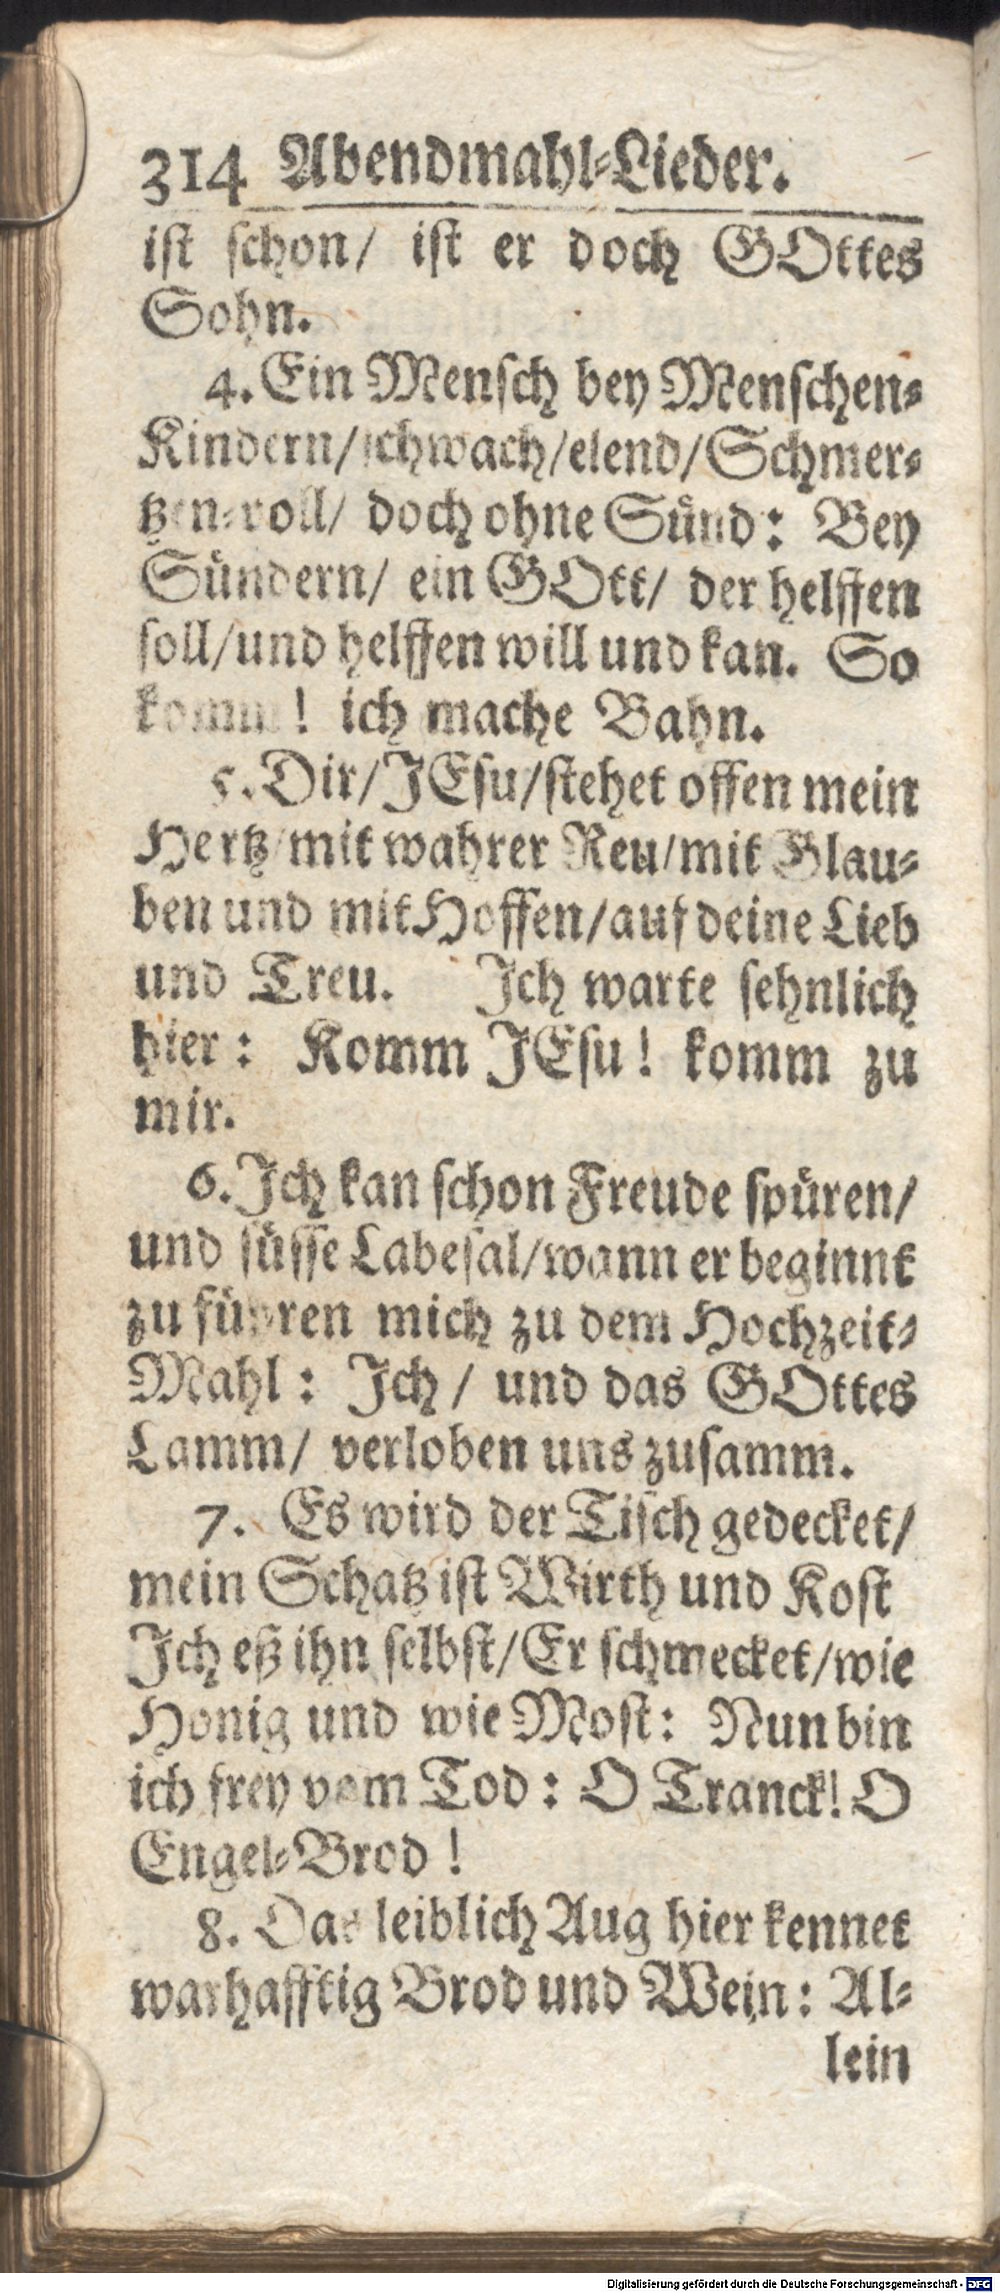 314 Abendmahl-Lieder.
ist schon/ ist er doch GOttes
Sohn.
4. Ein Mensch bey Menschen-
Kindern/schwach/elend/Schmer-
tzen-voll/ doch ohne Sünd: Bey
Sündern/ ein GOtt/ der helffen
soll/und helffen will und kan. So
komm! ich mache Bahn.
5. Dir/JEsu/stehet offen mein
Hertz/mit wahrer Reu/mit Glau-
ben und mit Hoffen/auf deine Lieb
und Treu. Ich warte sehnlich
hier: Komm JEsu! komm zu
mir.
6. Ich kan schon Freude spüren/
und süsse Labesal/wann er beginnt
zu führen mich zu dem Hochzeit-
Mahl: Ich/ und das GOttes
Lamm/ verloben uns zusamm.
7. Es wird der Tisch gedecket/
mein Schatz ist Wirth und Kost
Ich eß ihn selbst/Er schmecket/wie
Honig und wie Most: Nun bin
ich frey vom Tod: O Tranck! O
Engel-Brod!
8. Das leiblich Aug hier kennet
warhafftig Brod und Wein: Al-
lein
Digitalisierung gefördert durch die Deutsche Forschungsgemeinschaft - DFG